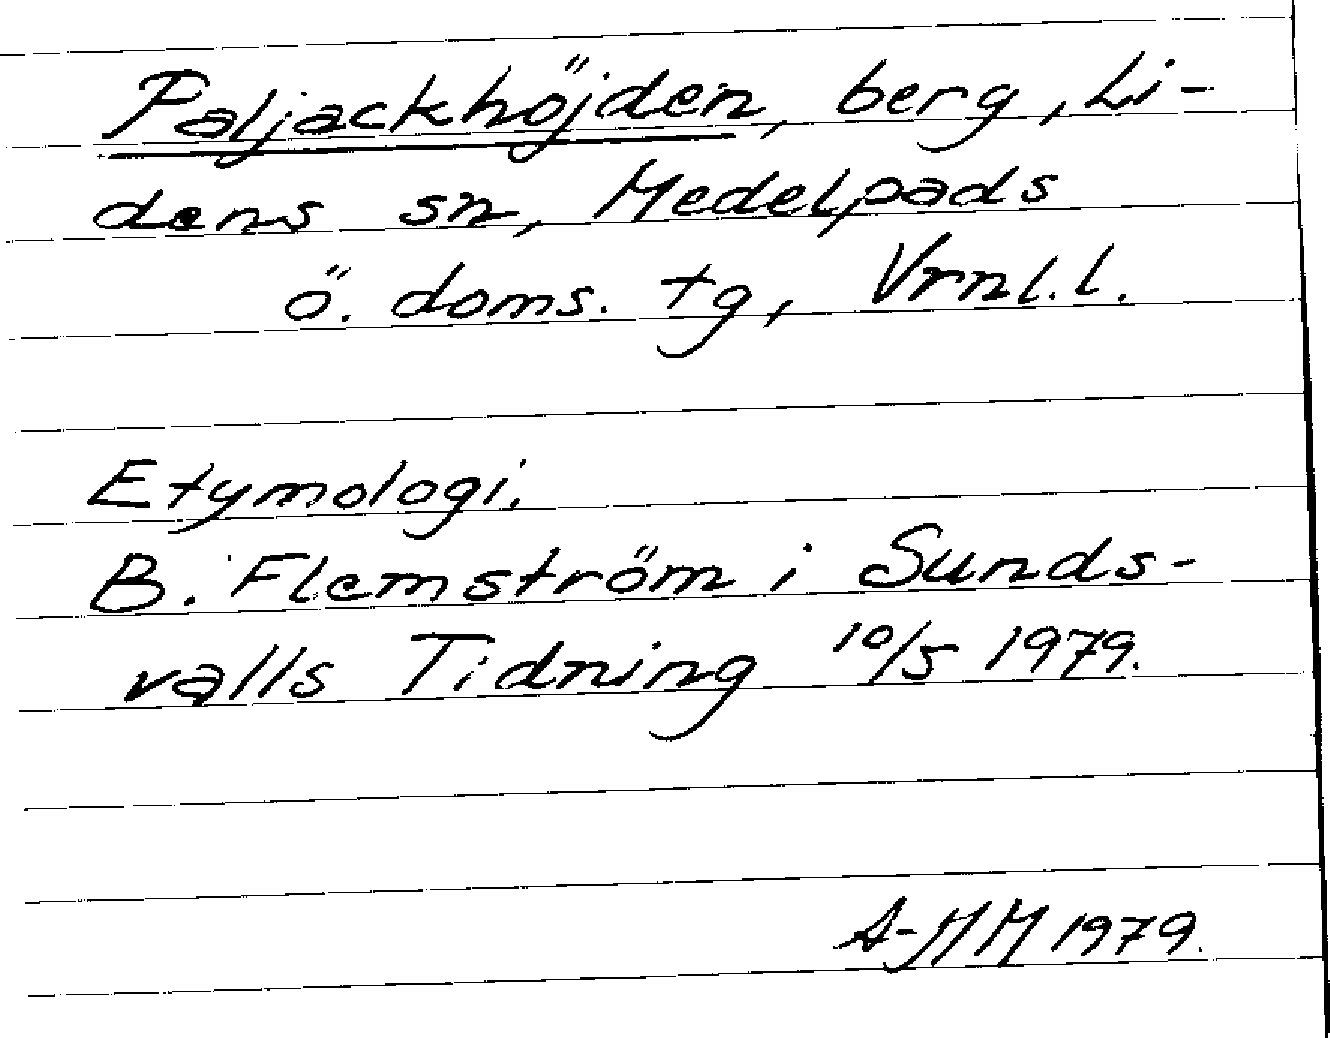 Paljackhöjden, berg, Li-
dens sn, Medelpads
ö. doms. tg, Vrnl. l.
Etymologi.
B. Flemström i Sunds-
valls Tidning 10/5 1979.
A-MM 1979.